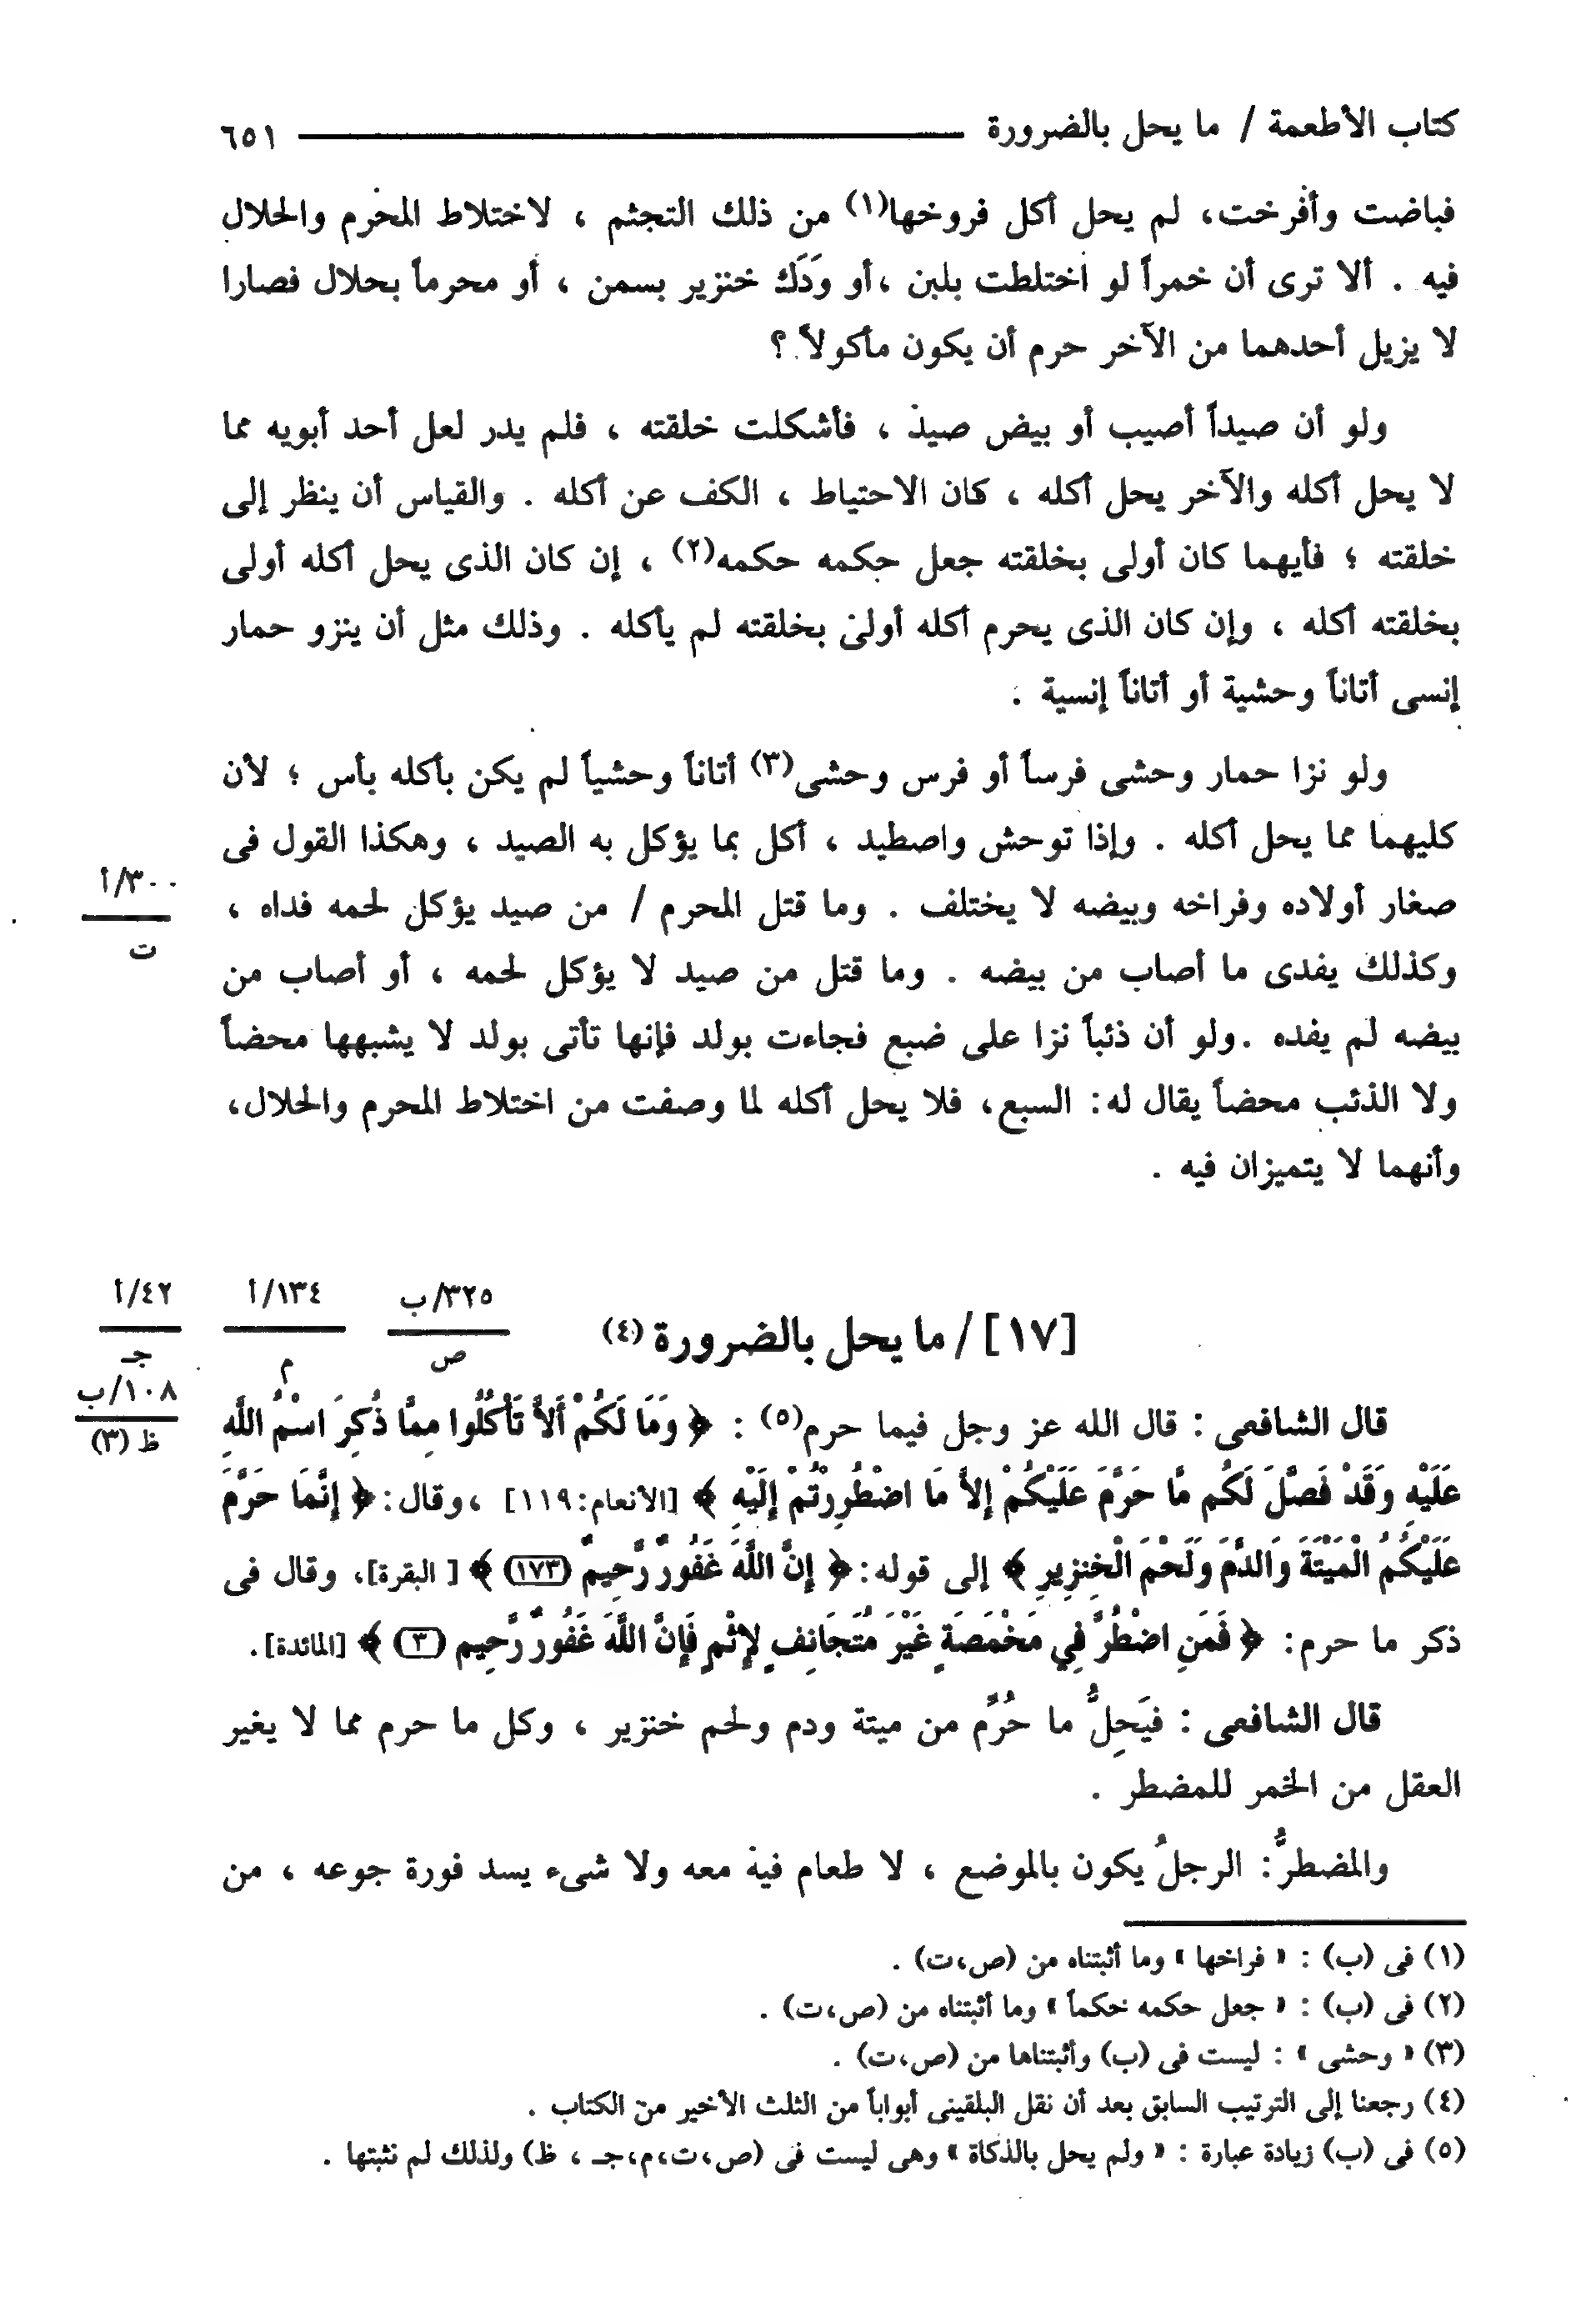 كتاب الأطعمة / ما يحل بالضرورة ٦٥١
فباضت وأفرخت، لم يحل أكل فروخها(١) من ذلك التجثم ، لاختلاط المحرم والحلال
فيه . ألا ترى أن خمراً لو اختلطت بلبن ،أو وَدَك خنزير بسمن ، أو محرماً بحلال فصارا
لا يزيل أحدهما من الآخر حرم أن يكون مأكولاً ؟
ولو أن صيداً أصيب أو بيض صيد ، فأشكلت خلقته ، فلم يدر لعل أحد أبويه مما
لا يحل أكله والآخر يحل أكله ، كان الاحتياط ، الكف عن أكله . والقياس أن ينظر إلى
خلقته ؛ فأيهما كان أولى بخلقته جعل حكمه حكمه(٢) ، إن كان الذى يحل أكله أولى
بخلقته أكله ، وإن كان الذى يحرم أكله أولى بخلقته لم يأكله . وذلك مثل أن ينزو حمار
إنسى أتاناً وحشية أو أتاناً إنسية .
ولو نزا حمار وحشى فرساً أو فرس وحشى(٣) أتاناً وحشياً لم يكن بأكله بأس ؛ لأن
كليهما مما يحل أكله . وإذا توحش واصطيد ، أكل بما يؤكل به الصيد ، وهكذا القول فى
صغار أولاده وفراخه وبيضه لا يختلف . وما قتل المحرم / من صيد يؤكل لحمه فداه ،
٣٠٠/أ
ت
وكذلك يفدى ما أصاب من بيضه . وما قتل من صيد لا يؤكل لحمه ، أو أصاب من
بيضه لم يفده .ولو أن ذئباً نزا على ضبع فجاءت بولد فإنها تأتى بولد لا يشبهها محضاً
ولا الذئب محضاً يقال له: السبع، فلا يحل أكله لما وصفت من اختلاط المحرم والحلال،
وأنهما لا يتميزان فيه .
[١٧] / ما يحل بالضرورة (٤)
٣٢٥/ب
ص
١٣٤/أ
م
٤٢/أ
جـ
١٠٨/ب
ظ (٣)
قال الشافعى : قال الله عز وجل فيما حرم(٥) : ﴿ وَمَا لَكُمْ أَلاَّ تَأْكُلُوا مِمَّا ذُكِرَ اسْمُ اللَّهِ
عَلَيْهِ وَقَدْ فَصَّلَ لَكُم مَّا حَرَّمَ عَلَيْكُمْ إِلاَّ مَا اضْطُرِرْتُمْ إِلَيْهِ ﴾ [الأنعام:١١٩] ،وقال:﴿ إِنَّمَا حَرَّمَ
عَلَيْكُمُ الْمَيْتَةَ وَالدَّمَ وَلَحْمَ الْخِنزِيرِ ﴾ إلى قوله:﴿ إِنَّ اللَّهَ غَفُورٌ رَّحِيمٌ (١٧٣) ﴾ [ البقرة]، وقال فى
ذكر ما حرم: ﴿ فَمَنِ اضْطُرَّ فِي مَخْمَصَةٍ غَيْرَ مُتَجَانِفٍ لإِثْمٍ فَإِنَّ اللَّهَ غَفُورٌ رَّحِيم (٣) ﴾ [المائدة].
قال الشافعى : فيَحِلُّ ما حُرِّم من ميتة ودم ولحم خنزير ، وكل ما حرم مما لا يغير
العقل من الخمر للمضطر .
والمضطرُّ: الرجلُ يكون بالموضع ، لا طعام فيه معه ولا شىء يسد فورة جوعه ، من
(١) فى (ب) : « فراخها » وما أثبتناه من (ص،ت) .
(٢) فى (ب) : « جعل حكمه حكماً » وما أثبتناه من (ص،ت) .
(٣) « وحشى » : ليست فى (ب) وأثبتناها من (ص،ت) .
(٤) رجعنا إلى الترتيب السابق بعد أن نقل البلقينى أبواباً من الثلث الأخير من الكتاب .
(٥) فى (ب) زيادة عبارة : « ولم يحل بالذكاة » وهى ليست فى (ص،ت،م،جـ ، ظ) ولذلك لم نثبتها .